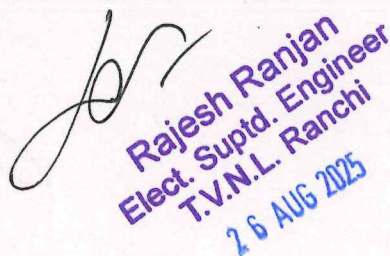 Rajesh Ranjan
Elect. Suptd. Engineer
T.V.N.L. Ranchi
26 AUG 2025